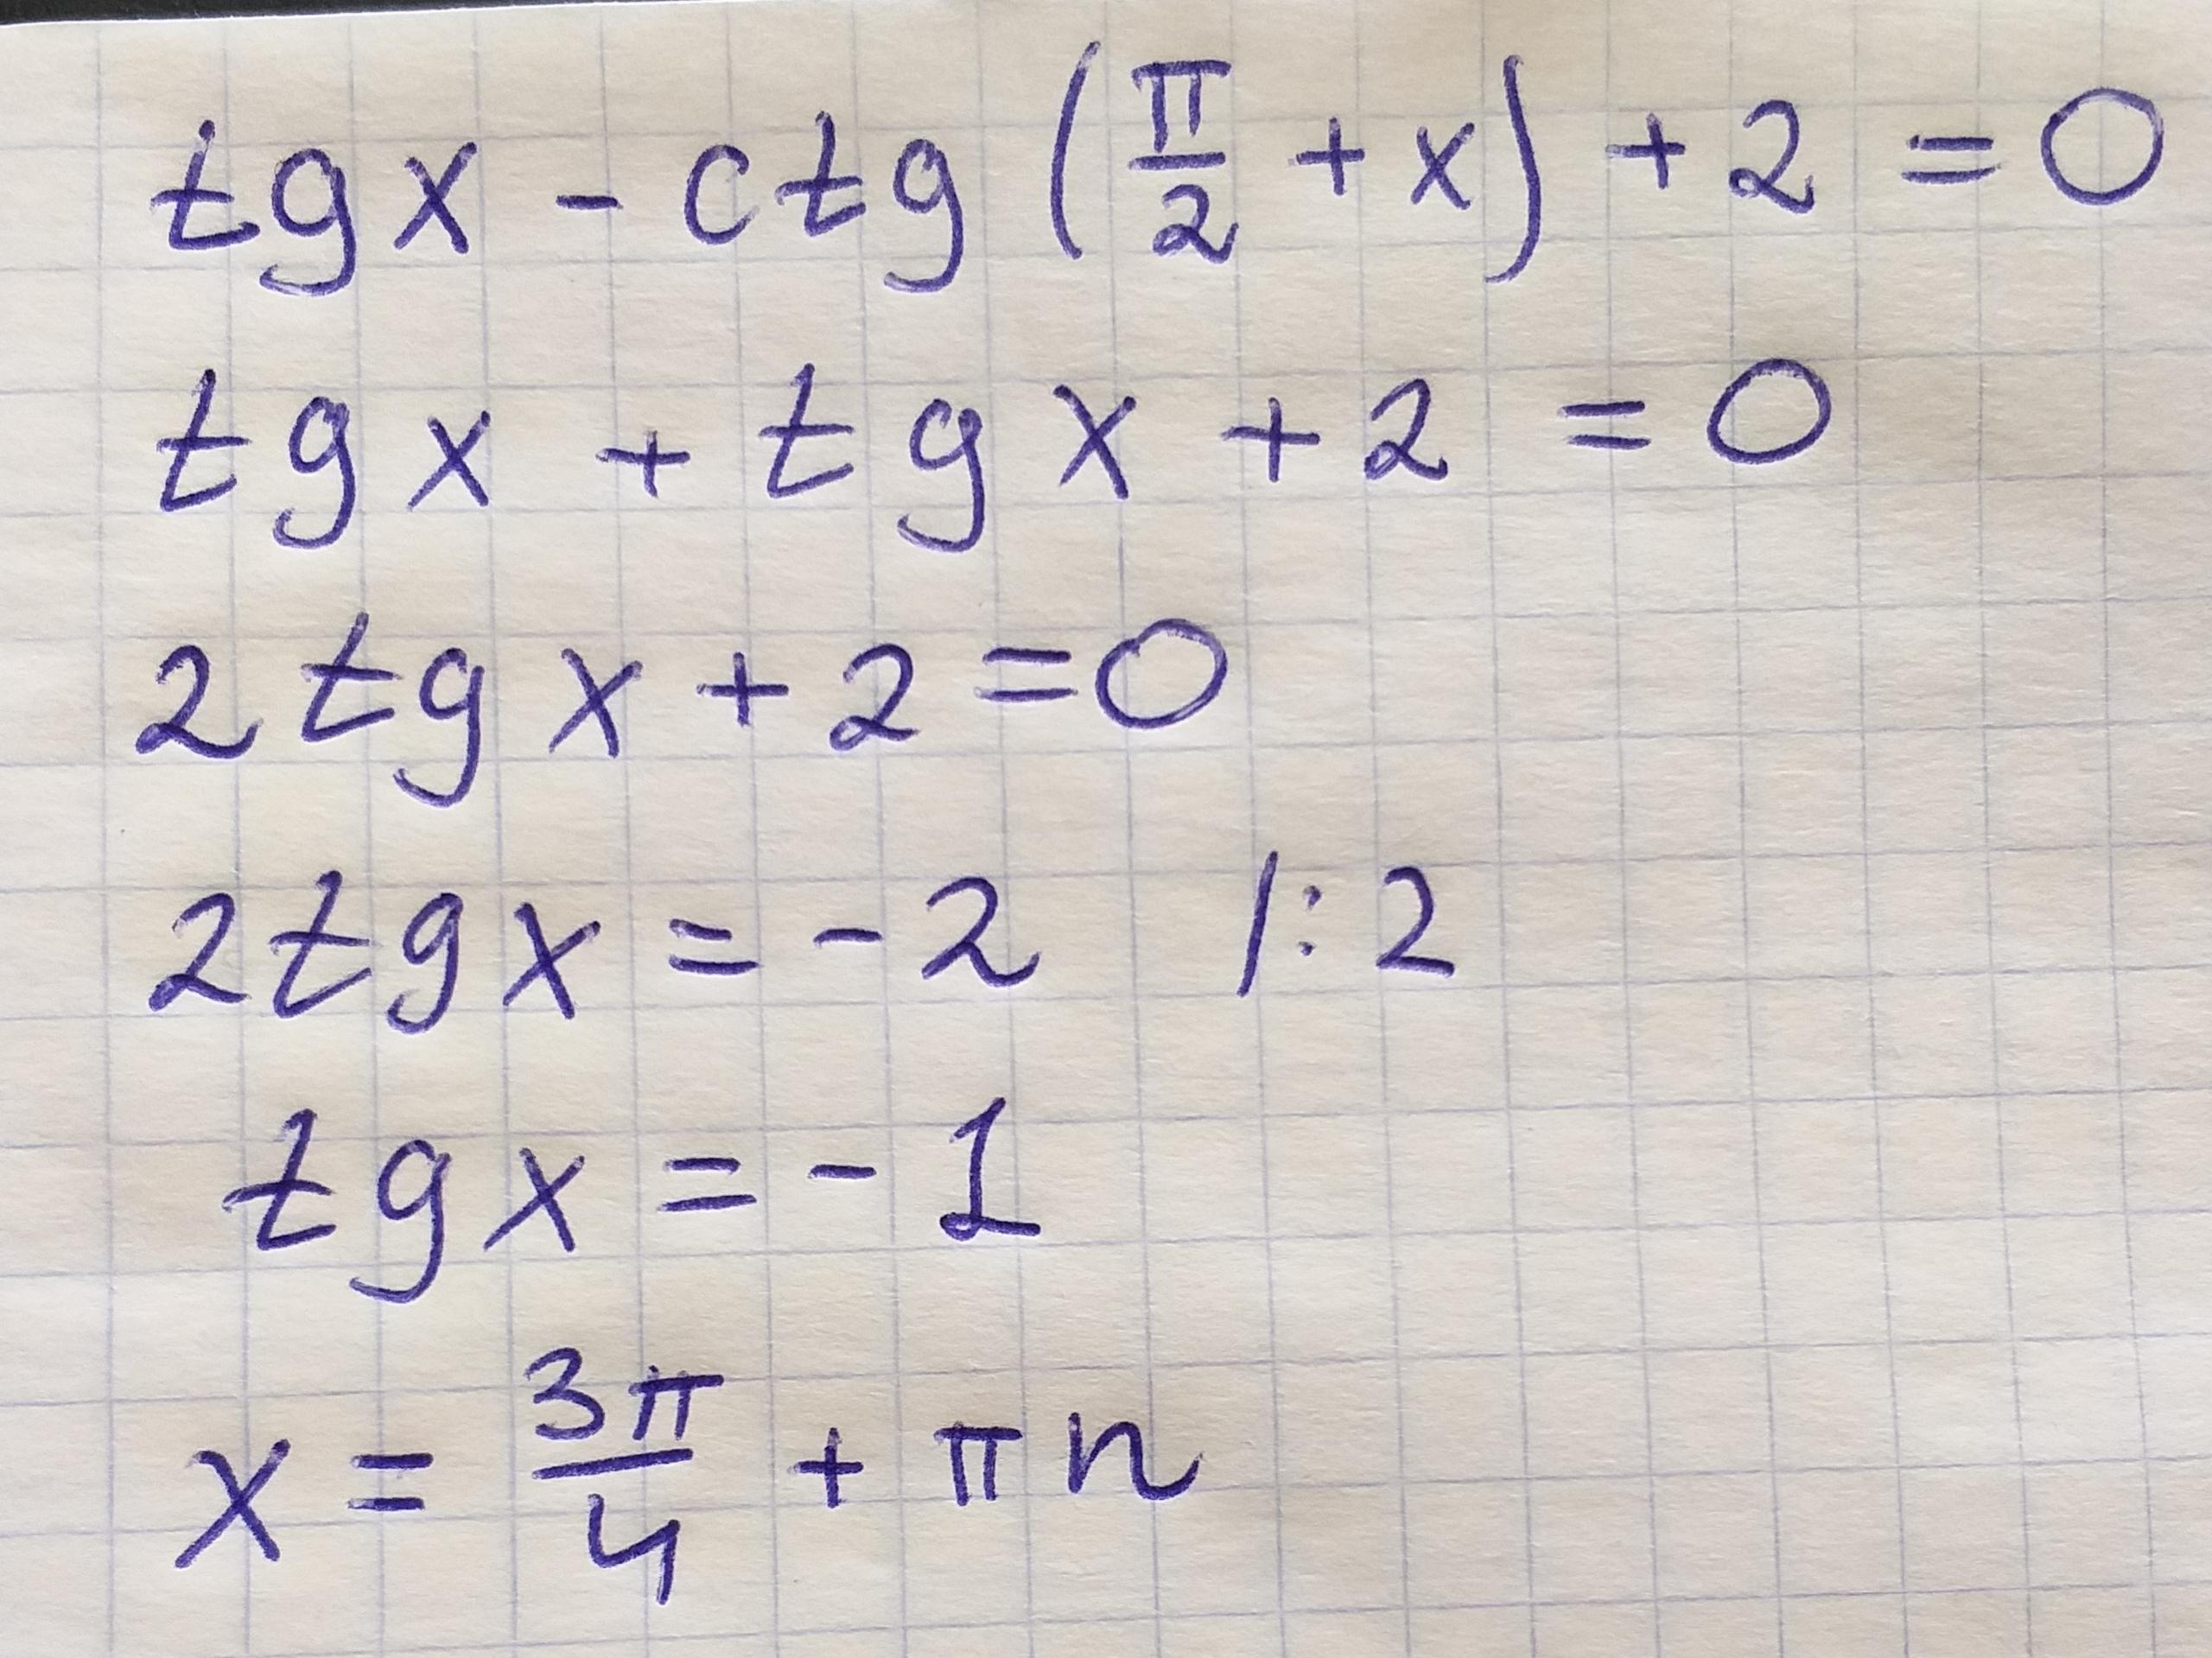 tg x - ctg (π/2 + x) + 2 = 0
tg x + tg x + 2 = 0
2 tg x + 2 = 0
2 tg x = - 2 /: 2
tg x = - 1
x = 3π/4 + π n